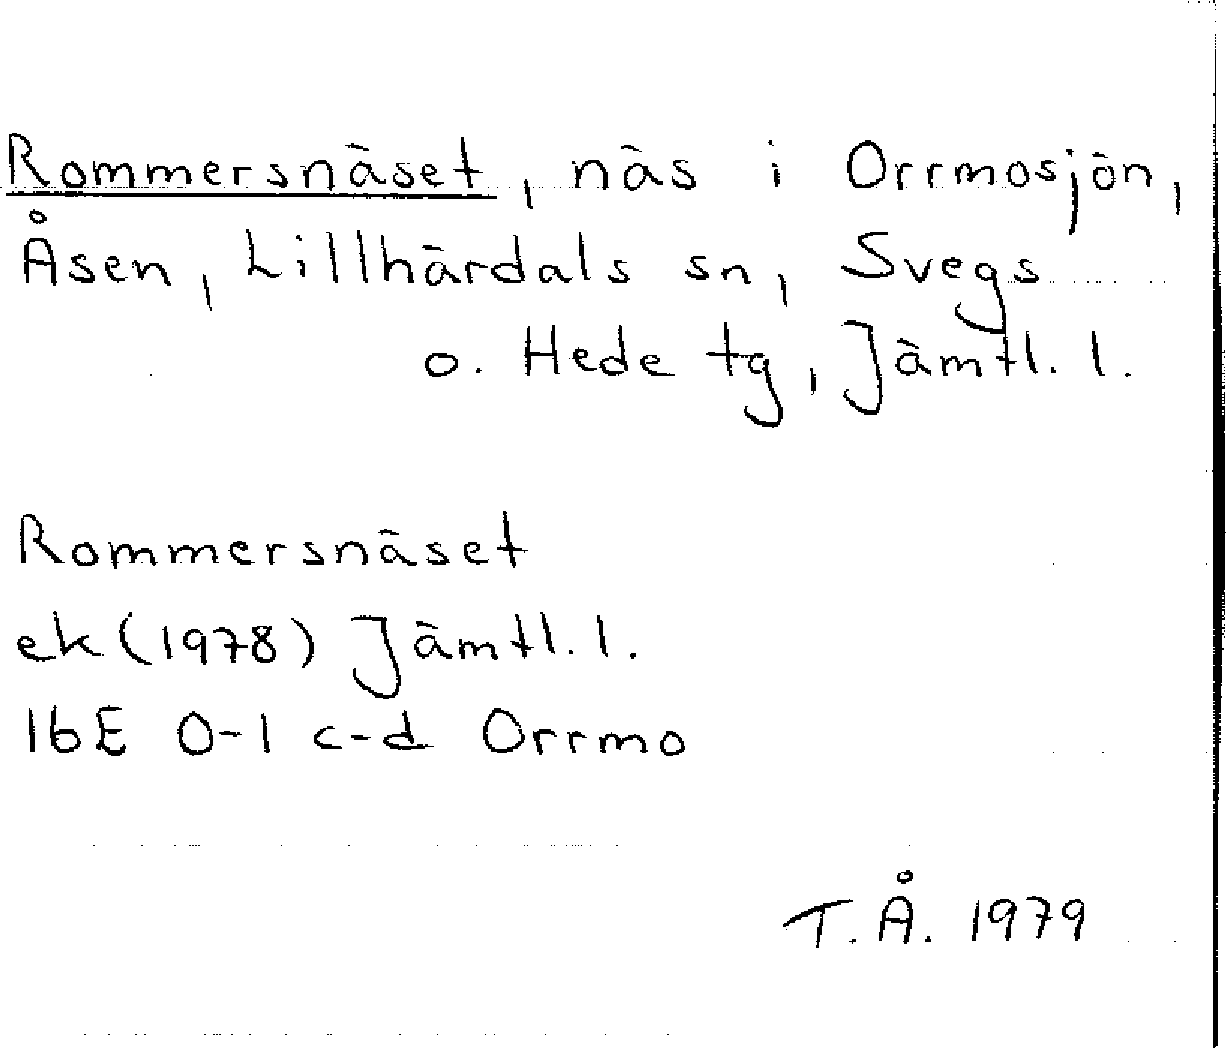 Rommersnäset, näs i Orrmosjön,
Åsen, Lillhärdals sn, Svegs
o. Hede tg, Jämtl. l.
Rommersnäset
ek (1978) Jämtl. l.
16E 0-1 c-d Orrmo
T.Å. 1979